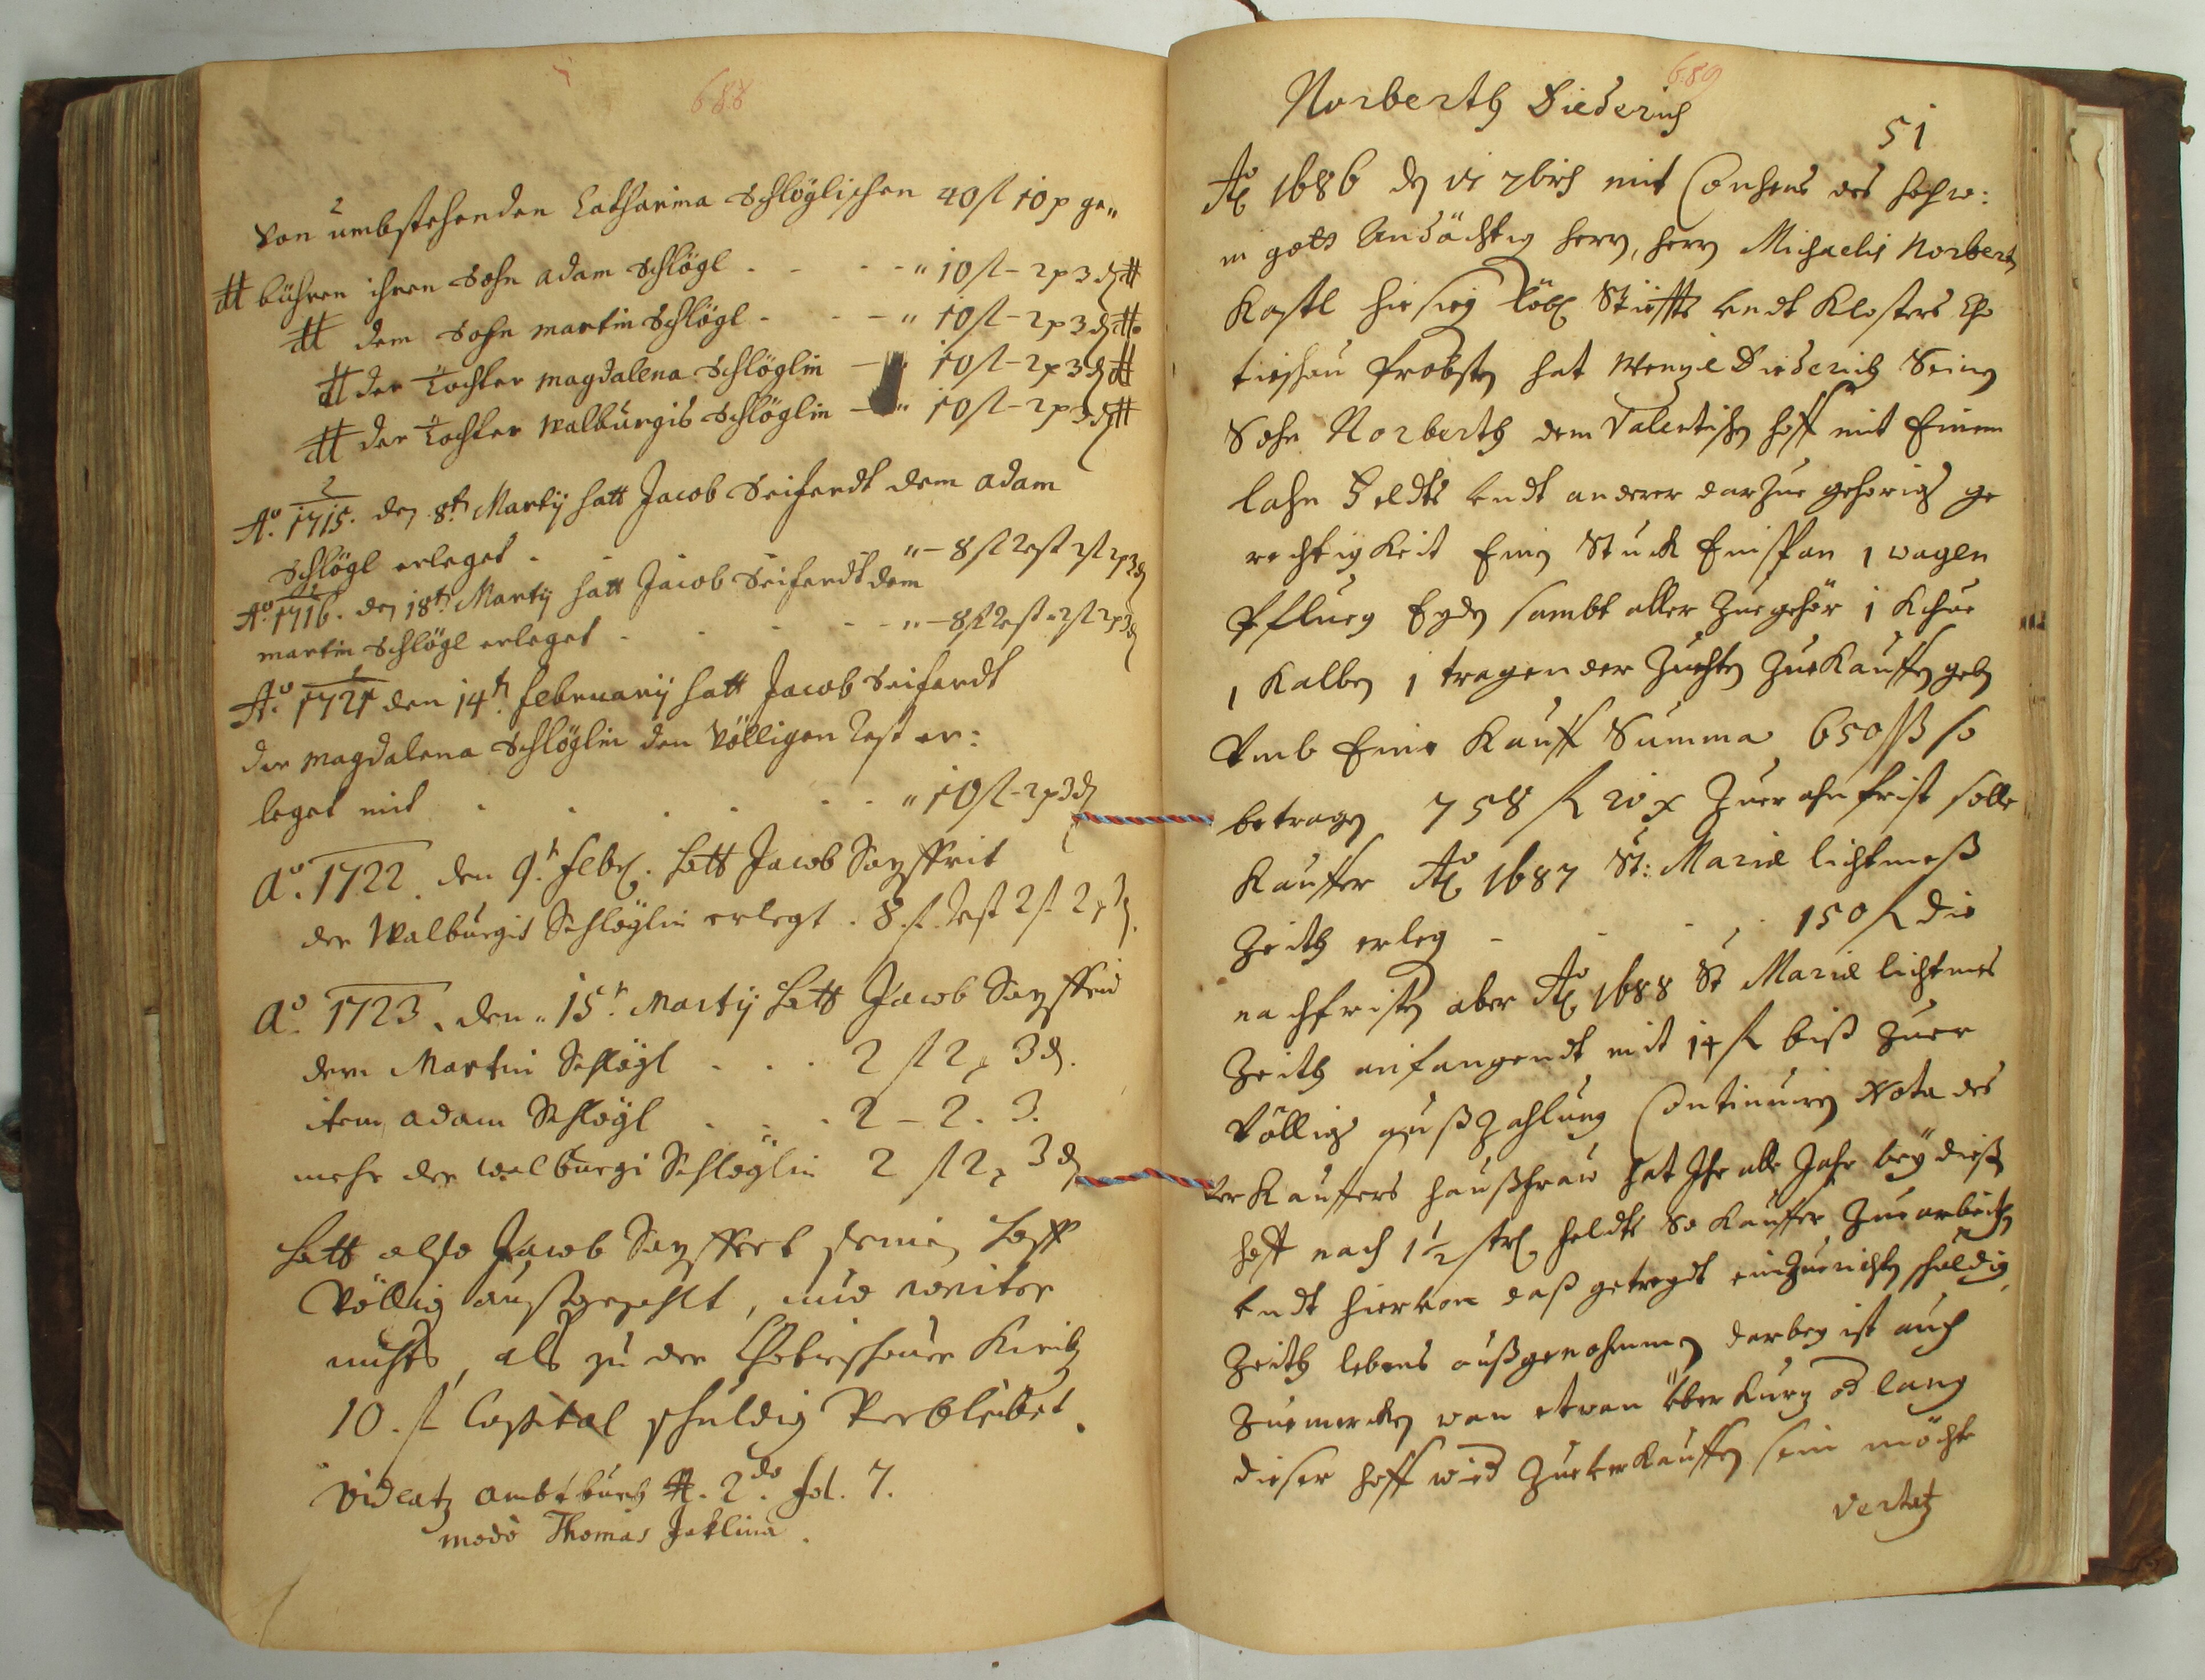 688
Von umbstehenden Catharina Schlöglischen 40 fl 10 x ge„
# bühren ihren Sohn Adam Schlögl - - - -„ 10 fl - 2 x 3 d #
# dem Sohn Martin Schlögl - - -„ 10 fl - 2 x 3 d #
# der Tochter Magdalena Schlöglin -„ 10 fl - 2 x 3 d #
# der Tochter Walburgis Schlöglin -„ 10 fl - 2 x 3 d #
Aō. 1715. den 8tn Martij hatt Jacob Seiferdt dem Adam
Schlögl erleget - - „- 8 fl Rest 2 fl 2 x 3 d
Aō 1716. den 18tn Martij hatt Jacob Seiferdt dem
Martin Schlögl erleget - - - - -„- 8 fl Rest 2 fl 2 x 3 d
Aō. 1721 den 14tn Februarij hatt Jacob Seiferdt
der Magdalena Schlöglin den völligen Rest er:
leget mit - - - - - - „ 10 fl - 2 x 3 d
Aō. 1722. den 9t. Feb. hatt Jacob Seyffrit
der Walburgis Schlöglin erlegt . 8 fl. Rest 2 fl 2 x 3 d.
Aō. 1723. den 15t. Martij hatt Jacob Seyffrid
dem Martin Schlögl . . . 2 fl 2 x 3 d.
item Adam Schlögl . . . 2 - 2. 3.
mehr der Walburgi Schlöglin 2 fl 2 x 3 d
hatt also Jacob Seyffert seinen Hoff
völlig außgezahlt, und weiter
nichts, als zu der Chotieschauer Kirch
10. fl Capital schuldig verbleibet.
Videatz ambtbuch #. 2do. fol. 7.
modo Thomas Jeklina.
689
Norberth Diederich
51
Aō 1686 den 7bris mit Consens des hochw:
in gott Andächtig herrn, herrn Michaelis Norbert
Kastl hiesig Löbl Stiffts undt Klosters Cho
tieschau Probsten hat Wenzl Diederich Seinen
Sohn Norberth dem Valentischen hoff mit Einem
lahn Feldts undt anderer darzue gehörigs ge
rechtigkeit Ein Stuck Einspan 1 wagen
Pflueg Egden sambt aller Zuegehör 1 Khue
1 Kalben 1 tragender Zuchten Zue Kauffen geben
Vmb Eine Kauff Summa 650 ßß so
betragen 758 fl 20 x Zuer ahnfrist solle
Kauffer Aō 1687 St: Mariæ lichtmeß
Zeith erleg - - - - 150 fl die
nachfristen aber Aō 1688 St Mariæ lichtmes
Zeith anfangendt mit 14 fl biß Zuer
Völligs außzahlung Continuiren Nota des
verkauffers haußfraw hat Ihr alle Jahr bey diesen
hoff nach 1 1/2 strl Feldts so Kauffer Zuearbeithen
undt hiervon daß getreydt einzuerichten schuldig
Zeith lebens außgenohmmen darbey ist auch
Zuemercken wan etwan über kurz od lang
dieser hoff wid Zueverkauffen sein möchte
vertatz